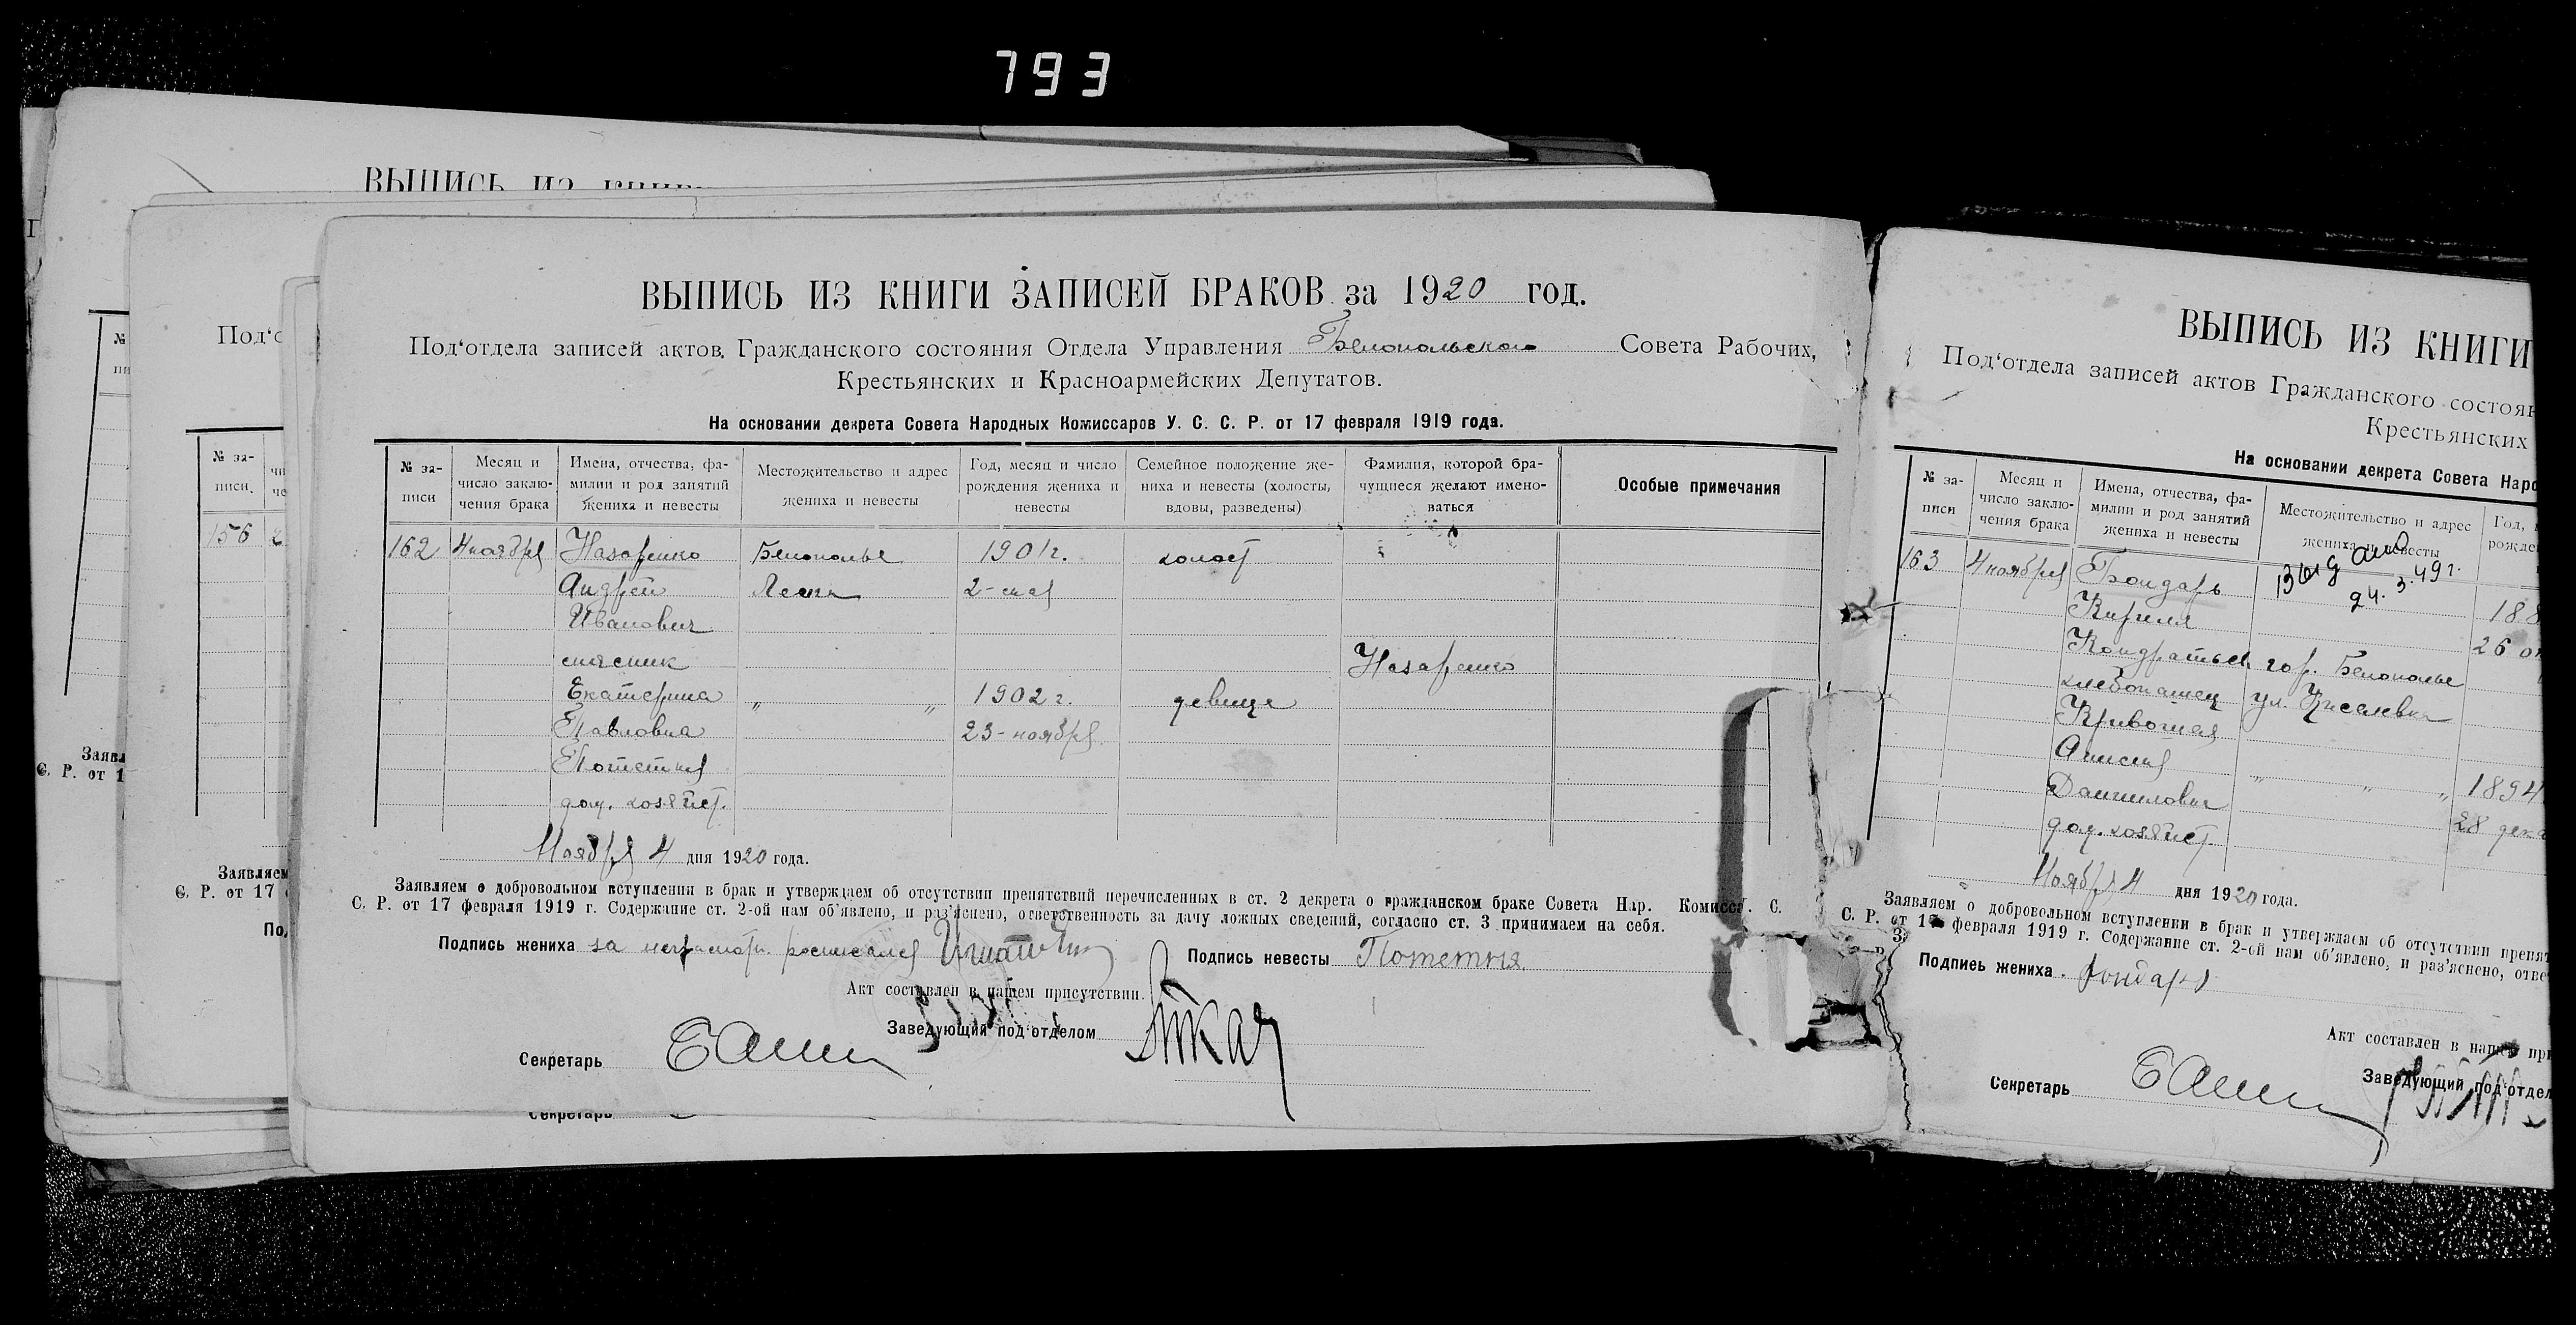 793
ВЫПИСЬ ИЗ
Под‘о
№ за-
писи.
156
Заявл
С. Р. от 1
Заявляем
С. Р. от 17
По
ВЫПИСЬ ИЗ КНИГИ ЗАПИСЕЙ БРАКОВ за 1920 год.
Под‘отдела записей актов. Гражданского состояния Отдела Управления Белопольского Совета Рабочих,
Крестьянских и Красноармейских Депутатов.
На основании декрета Совета Народных Комиссаров У. С. С. Р. от 17 февраля 1919 года.
№ за-
писи
Месяц и
число заклю-
чения брака
Имена, отчества, фа-
милии и род занятий
жениха и невесты
Местожительство и адрес
жениха и невесты
Год, месяц и число
рождения жениха и
невесты
Семейное положение же-
ниха и невесты (холосты,
вдовы, разведены)
Фамилия, которой бра-
чущиеся желают имено-
ваться
Особые примечания
162 4 ноября Назаренко Белополье 1901 г. холост
Андрей 2-мая
Иванович
Назаренко
Екатерина „ „ 1902 г. девица
Павловна 23-ноября
Потетня
дом. хозяйст.
Ноября 4 дня 1920 года.
Заявляем о добровольном вступлении в брак и утверждаем об отсутствии препятствий перечисленных в ст. 2 декрета о гражданском браке Совета Нар. Комисса. С.
С. Р. от 17 февраля 1919 г. Содержание ст. 2-ой нам об‘явлено, и раз‘яснено, ответственность за дачу ложных сведений, согласно ст. 3 принимаем на себя.
Подпись жениха за расписался
Подпись невесты Потетня
Акт составлен в нашем присутствии.
Заведующий под‘отделом Ткач
Секретарь
Секретарь
ВЫПИСЬ ИЗ КНИГИ
Под‘отдела записей актов Гражданского состоян
Крестьянских
На основании декрета Совета Наро
№ за-
писи
Месяц и
число заклю-
чения брака
Имена, отчества, фа-
милии и род занятий
жениха и невесты
Местожительство и адрес
жениха и невесты
Год,
рожде
Выдано
24. 3. 49 г.
163 4 ноября Бондарь
Кирилл 188
Кондратьев гор. Белополье 26 ок
хлебопашец ул.
Кривошея
Анисия
Данилович „ „ „ 1894
дом. хозяйст. 28 дека
Ноября 4 дня 1920 года.
Заявляем о добровольном вступлении в брак и утверждаем об отсутствии препят
С. Р. от 17 февраля 1919 г. Содержание ст. 2-ой нам об‘явлено, и раз‘яснено, отве
Подпись жениха Бондарь
Акт составлен в нашем при
Заведующий под‘отдел
Секретарь